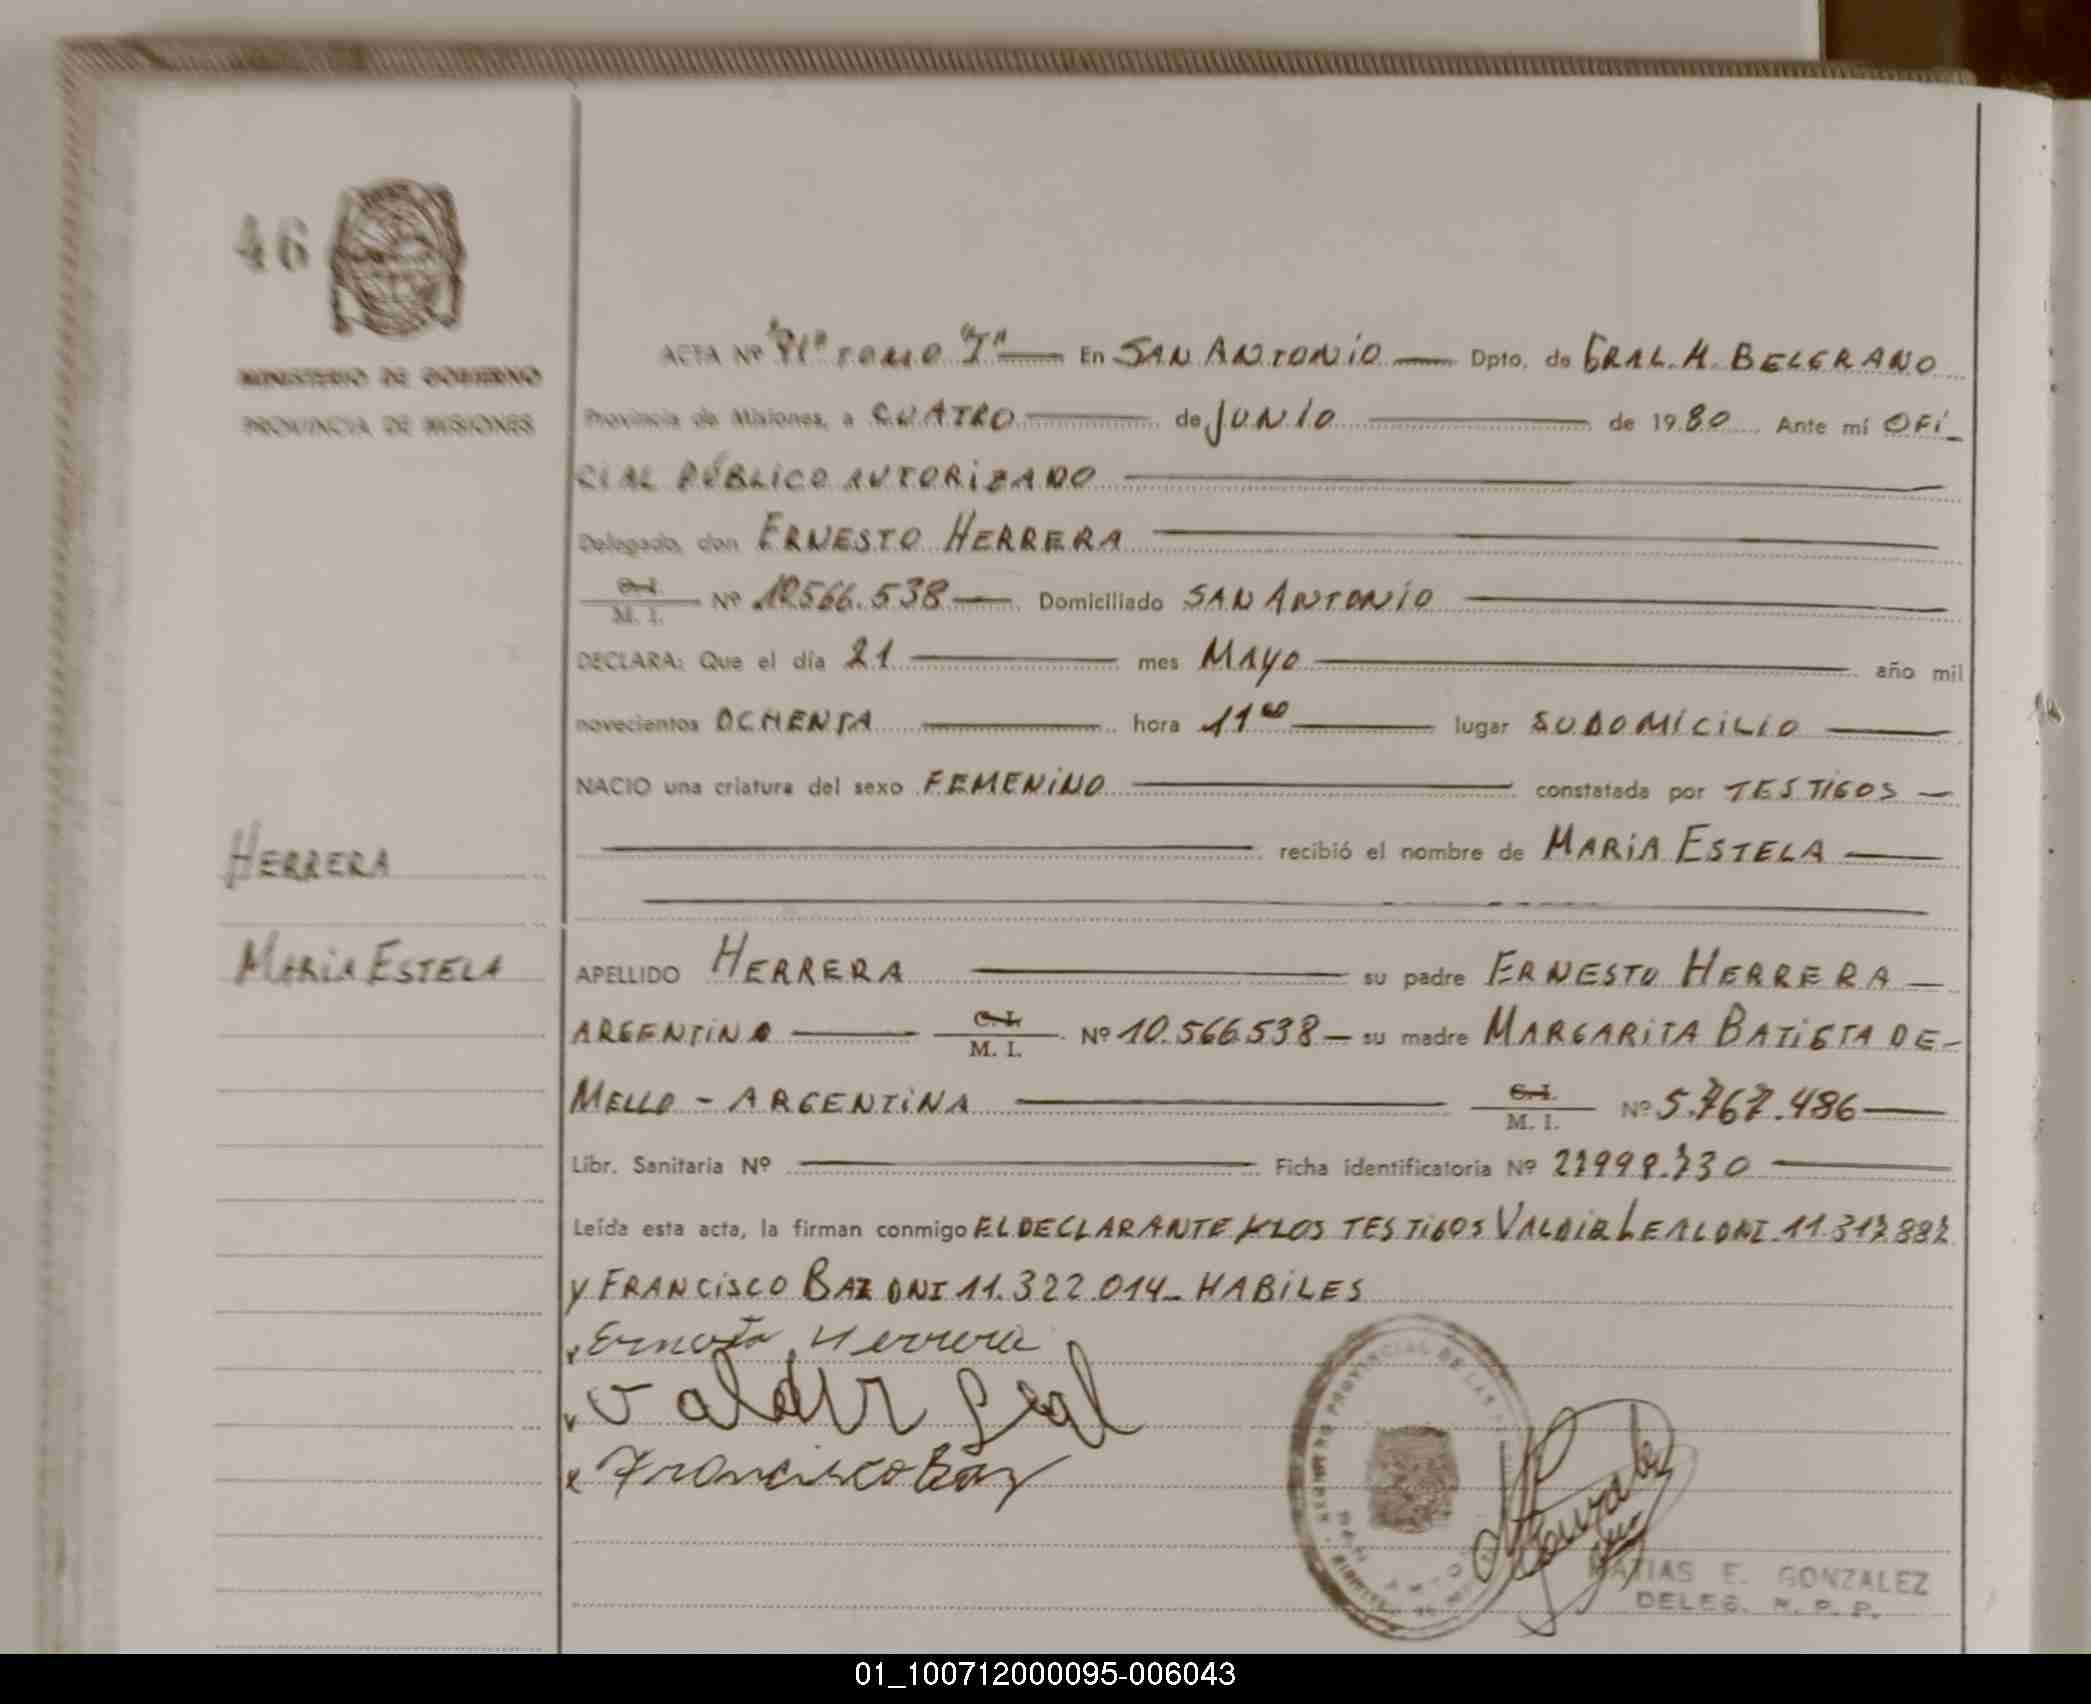 46
MINISTERIO DE GOBIERNO
PROVINCIA DE MISIONES
ACTA Nº "91" TOMO "I" En SAN ANTONIO Dpto. de GRAL. M. BELGRANO
Provincia de Misiones, a CUATRO de JUNIO de 1980 Ante mí OFI_
CIAL PÚBLICO AUTORIZADO
Delegado, don ERNESTO HERRERA
C. I.
M. I. Nº 10.566.538 Domiciliado SAN ANTONIO
DECLARA: Que el día 21 mes MAYO año mil
novecientos OCHENTA hora 11⁰⁰ lugar SU DOMICILIO
NACIO una criatura del sexo FEMENINO constatada por TESTIGOS
recibió el nombre de MARIA ESTELA
HERRERA
MARIA ESTELA
APELLIDO HERRERA su padre ERNESTO HERRERA
ARGENTINO C. I. M. I. Nº 10.566.538 su madre MARGARITA BATISTA DE-
MELLO - ARGENTINA C. I. M. I. Nº 5.767.486
Libr. Sanitaria Nº Ficha identificatoria Nº
Leída esta acta, la firman conmigo EL DECLARANTE Y LOS TESTIGOS VALDIR LEAL DNI. 11.317.887
y FRANCISCO BAZ DNI 11.322.014_ HABILES
Ernesto Herrera
Valdir Leal
Francisco Baz
PROVINCIAL DE LAS
Gonzalez
MATIAS E. GONZALEZ
DELEG. R. P. P.
01_100712000095-006043